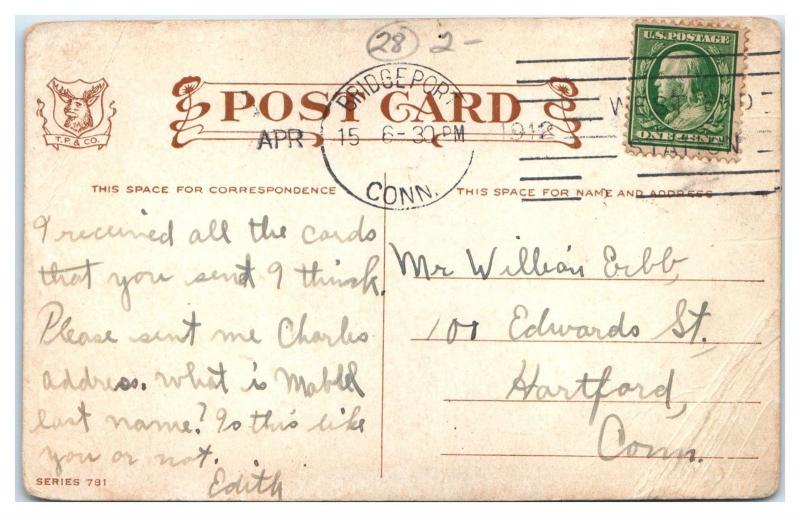 28 2-
U.S. POSTAGE
ONE CENT
T.P. & CO.
POST CARD
BRIDGEPORT
APR 15 6-30 PM 1912
CONN.
STATION
THIS SPACE FOR CORRESPONDENCE
THIS SPACE FOR NAME AND ADDRESS
I received all the cards
that you send I think.
Please sent me Charles
address. What is Mabel
last name? Is this like
you or not.
Edith
Mr William Erbb,
100 Edwards St.
Hartford,
Conn.
SERIES 781